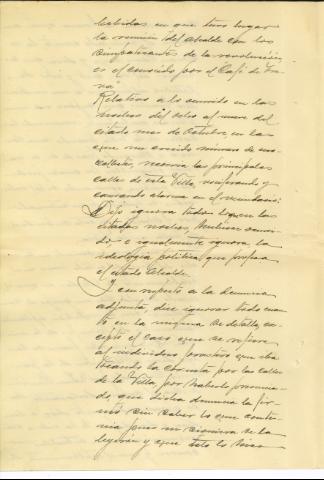 bebidas en que tuvo lugar
la reunión del Alcalde con los
simpatizantes de la revolución,
es el conocido por el Café de
Relativo a lo ocurrido en las
noches del ocho al nueve del
citado mes de Octubre, en las
que un crecido número de
recorría las principales
calles de esta Villa, vociferando y
causando alarma en el vecindario:
Dijo ignora todo lo que en las
citadas noches, hubiese ocurri-
do e igualmente ignora la
ideología política que profesa
el citado Alcalde.
Y con respecto a la denuncia
adjunta, dice ignorar todo cuan-
to en la misma se detalla, ex-
cepto el caso que se refiere
al individuo forastero que iba
tocando la corneta por las calles
de la Villa, por haberlo presencia-
do, que dicha denuncia la fir-
mó sin saber lo que conte-
nía pues ni siquiera se la
leyeron y que esto lo hizo